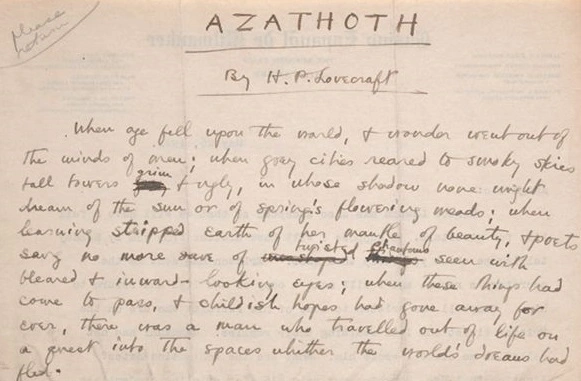 please
return
AZATHOTH
By H. P. Lovecraft
When age fell upon the world, & wonder went out of
the minds of men; when grey cities reared to smoky skies
tall towers grim & ugly, in whose shadow none might
dream of the sun or of spring's flowering meads; when
learning stripped earth of her mantle of beauty, & poets
sang no more save of twisted phantoms seen with
bleared & inward-looking eyes; when these things had
come to pass, & childish hopes had gone away for
ever, there was a man who travelled out of life on
a quest into the spaces whither the world's dreams had
fled.